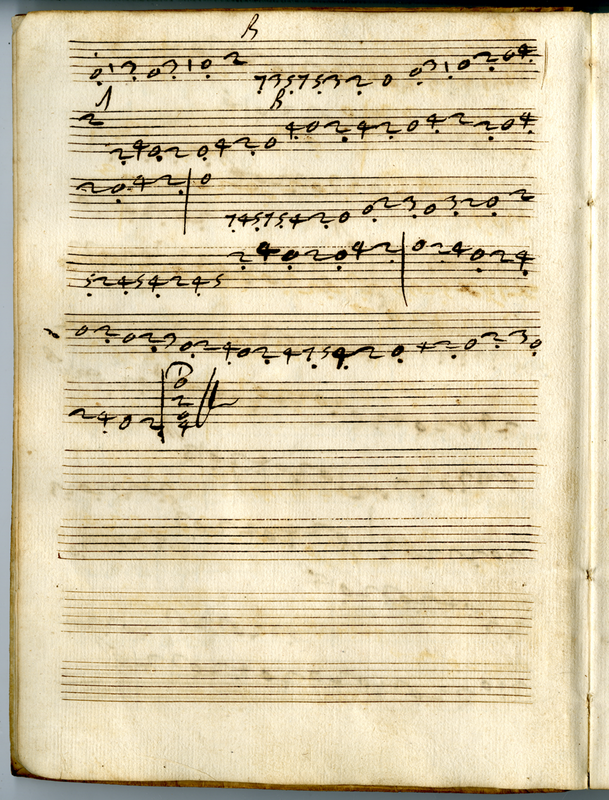 R
0 1 3 0 3 1 0 2 7 3 5 7 5 3 2 0 0 3 1 0 2 0 4
R
2 2 4 0 2 0 4 2 0 4 0 2 4 2 0 4 2 2 0 4
2 0 4 2 0 7 4 5 7 5 4 2 0 0 2 3 0 3 2 0 2
5 2 4 5 4 2 4 5 2 4 0 2 0 4 2 0 2 4 0 2 4
0 2 0 2 3 0 2 4 0 2 4 7 5 4 2 0 4 2 0 2 3 0
2 4 0 2 0 2 0 4